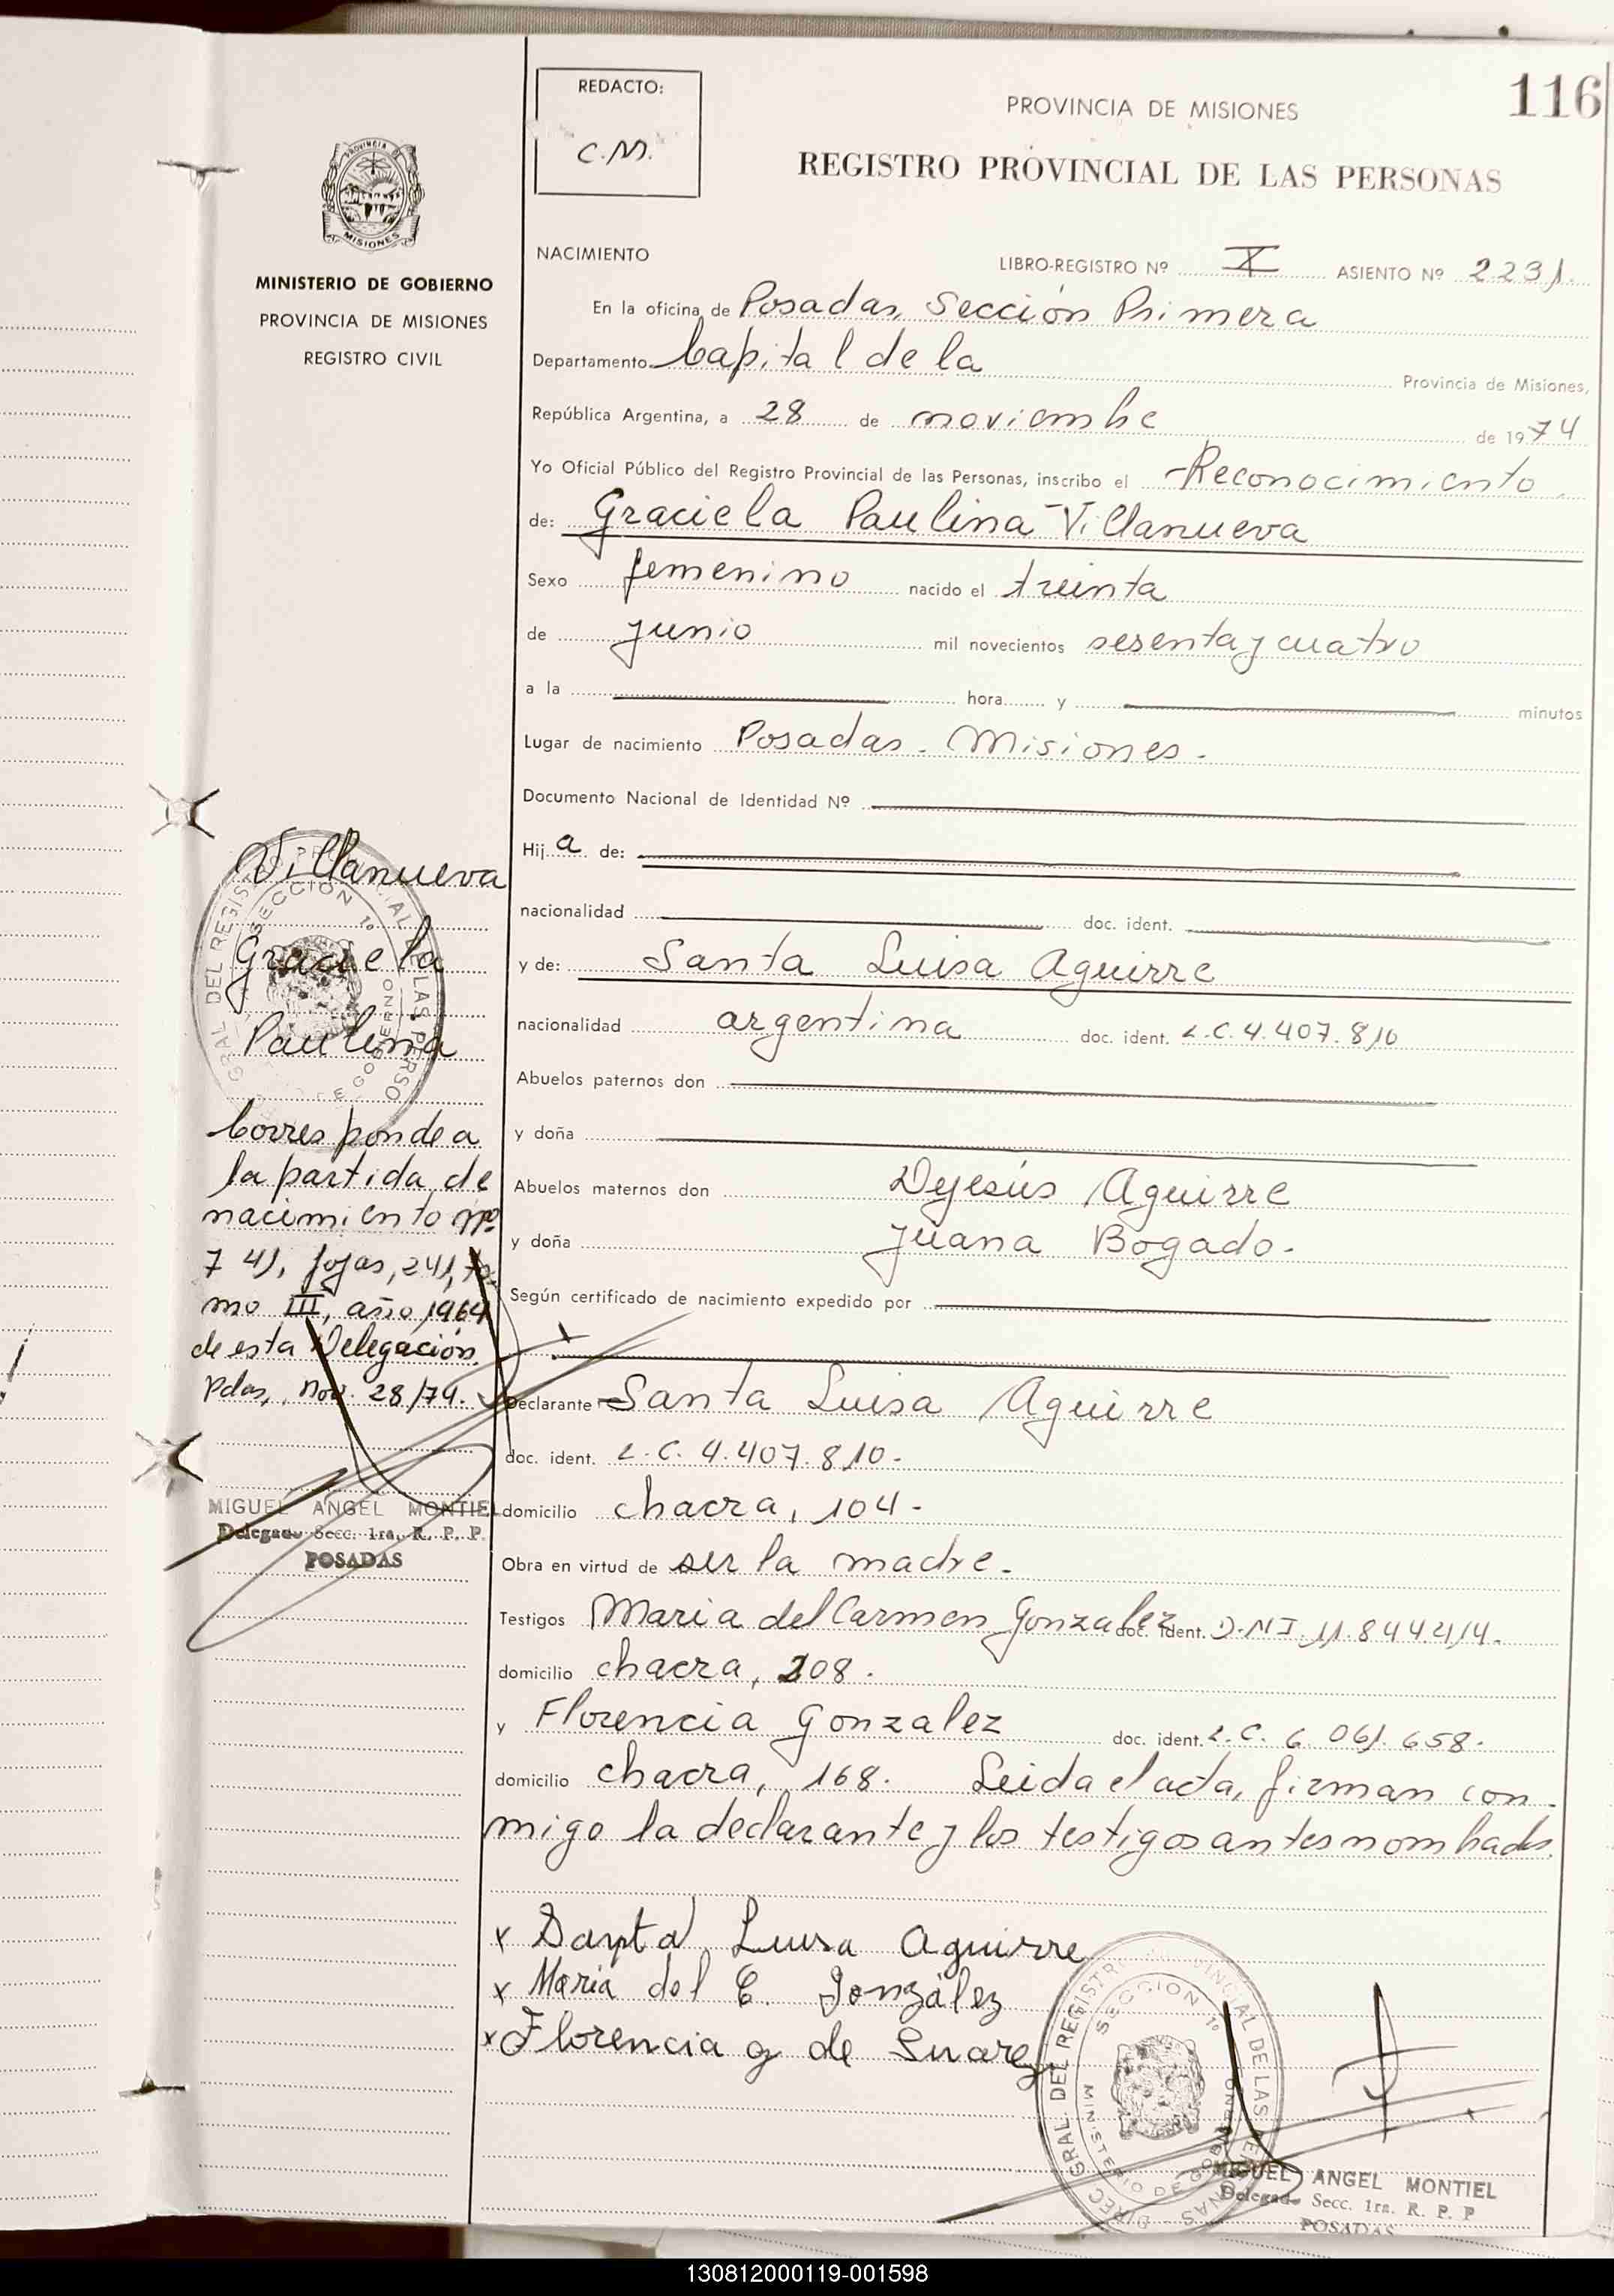 116
REDACTO:
C.M.
PROVINCIA DE MISIONES
REGISTRO PROVINCIAL DE LAS PERSONAS
PROVINCIA DE
MISIONES
MINISTERIO DE GOBIERNO
PROVINCIA DE MISIONES
REGISTRO CIVIL
NACIMIENTO
LIBRO-REGISTRO Nº X ASIENTO Nº 2231.
En la oficina de Posadas, Sección Primera
Departamento Capital de la Provincia de Misiones,
República Argentina, a 28 de noviembre de 1974
Yo Oficial Público del Registro Provincial de las Personas, inscribo el -Reconocimiento
de: Graciela Paulina Villanueva
Sexo femenino nacido el treinta
de junio mil novecientos sesenta y cuatro
a la hora y minutos
Lugar de nacimiento Posadas. Misiones.
Documento Nacional de Identidad Nº
Hij a de:
nacionalidad doc. ident.
y de: Santa Luisa Aguirre
nacionalidad argentina doc. ident. L.C. 4.407.810
Abuelos paternos don
y doña
Abuelos maternos don Dejesús Aguirre
y doña Juana Bogado.
Según certificado de nacimiento expedido por
Declarante Santa Luisa Aguirre
doc. ident. L.C. 4.407.810.
domicilio chacra, 104.
Obra en virtud de ser la madre.
Testigos Maria del Carmen Gonzalez doc. ident. D.N.I. 11.844.214.
domicilio chacra, 208.
y Florencia Gonzalez doc. ident. L.C. 6.061.658.
domicilio chacra, 168. Leida el acta, firman con-
migo la declarante y los testigos antes nombrados.
x Santa Luisa Aguirre
x Maria del C. González
x Florencia G de Suarez
Villanueva
Graciela
Paulina
Corresponde a
la partida de
nacimiento nº
741, fojas, 241, to-
mo III, año, 1964
de esta Delegación.
Pdas, Nov. 28/74.
MIGUEL ANGEL MONTIEL
Delegado Secc. 1ra. R. P. P.
POSADAS
SECCION 1º
MINISTERIO DE GOBIERNO
MIGUEL ANGEL MONTIEL
Delegado Secc. 1ra. R. P. P
POSADAS
130812000119-001598